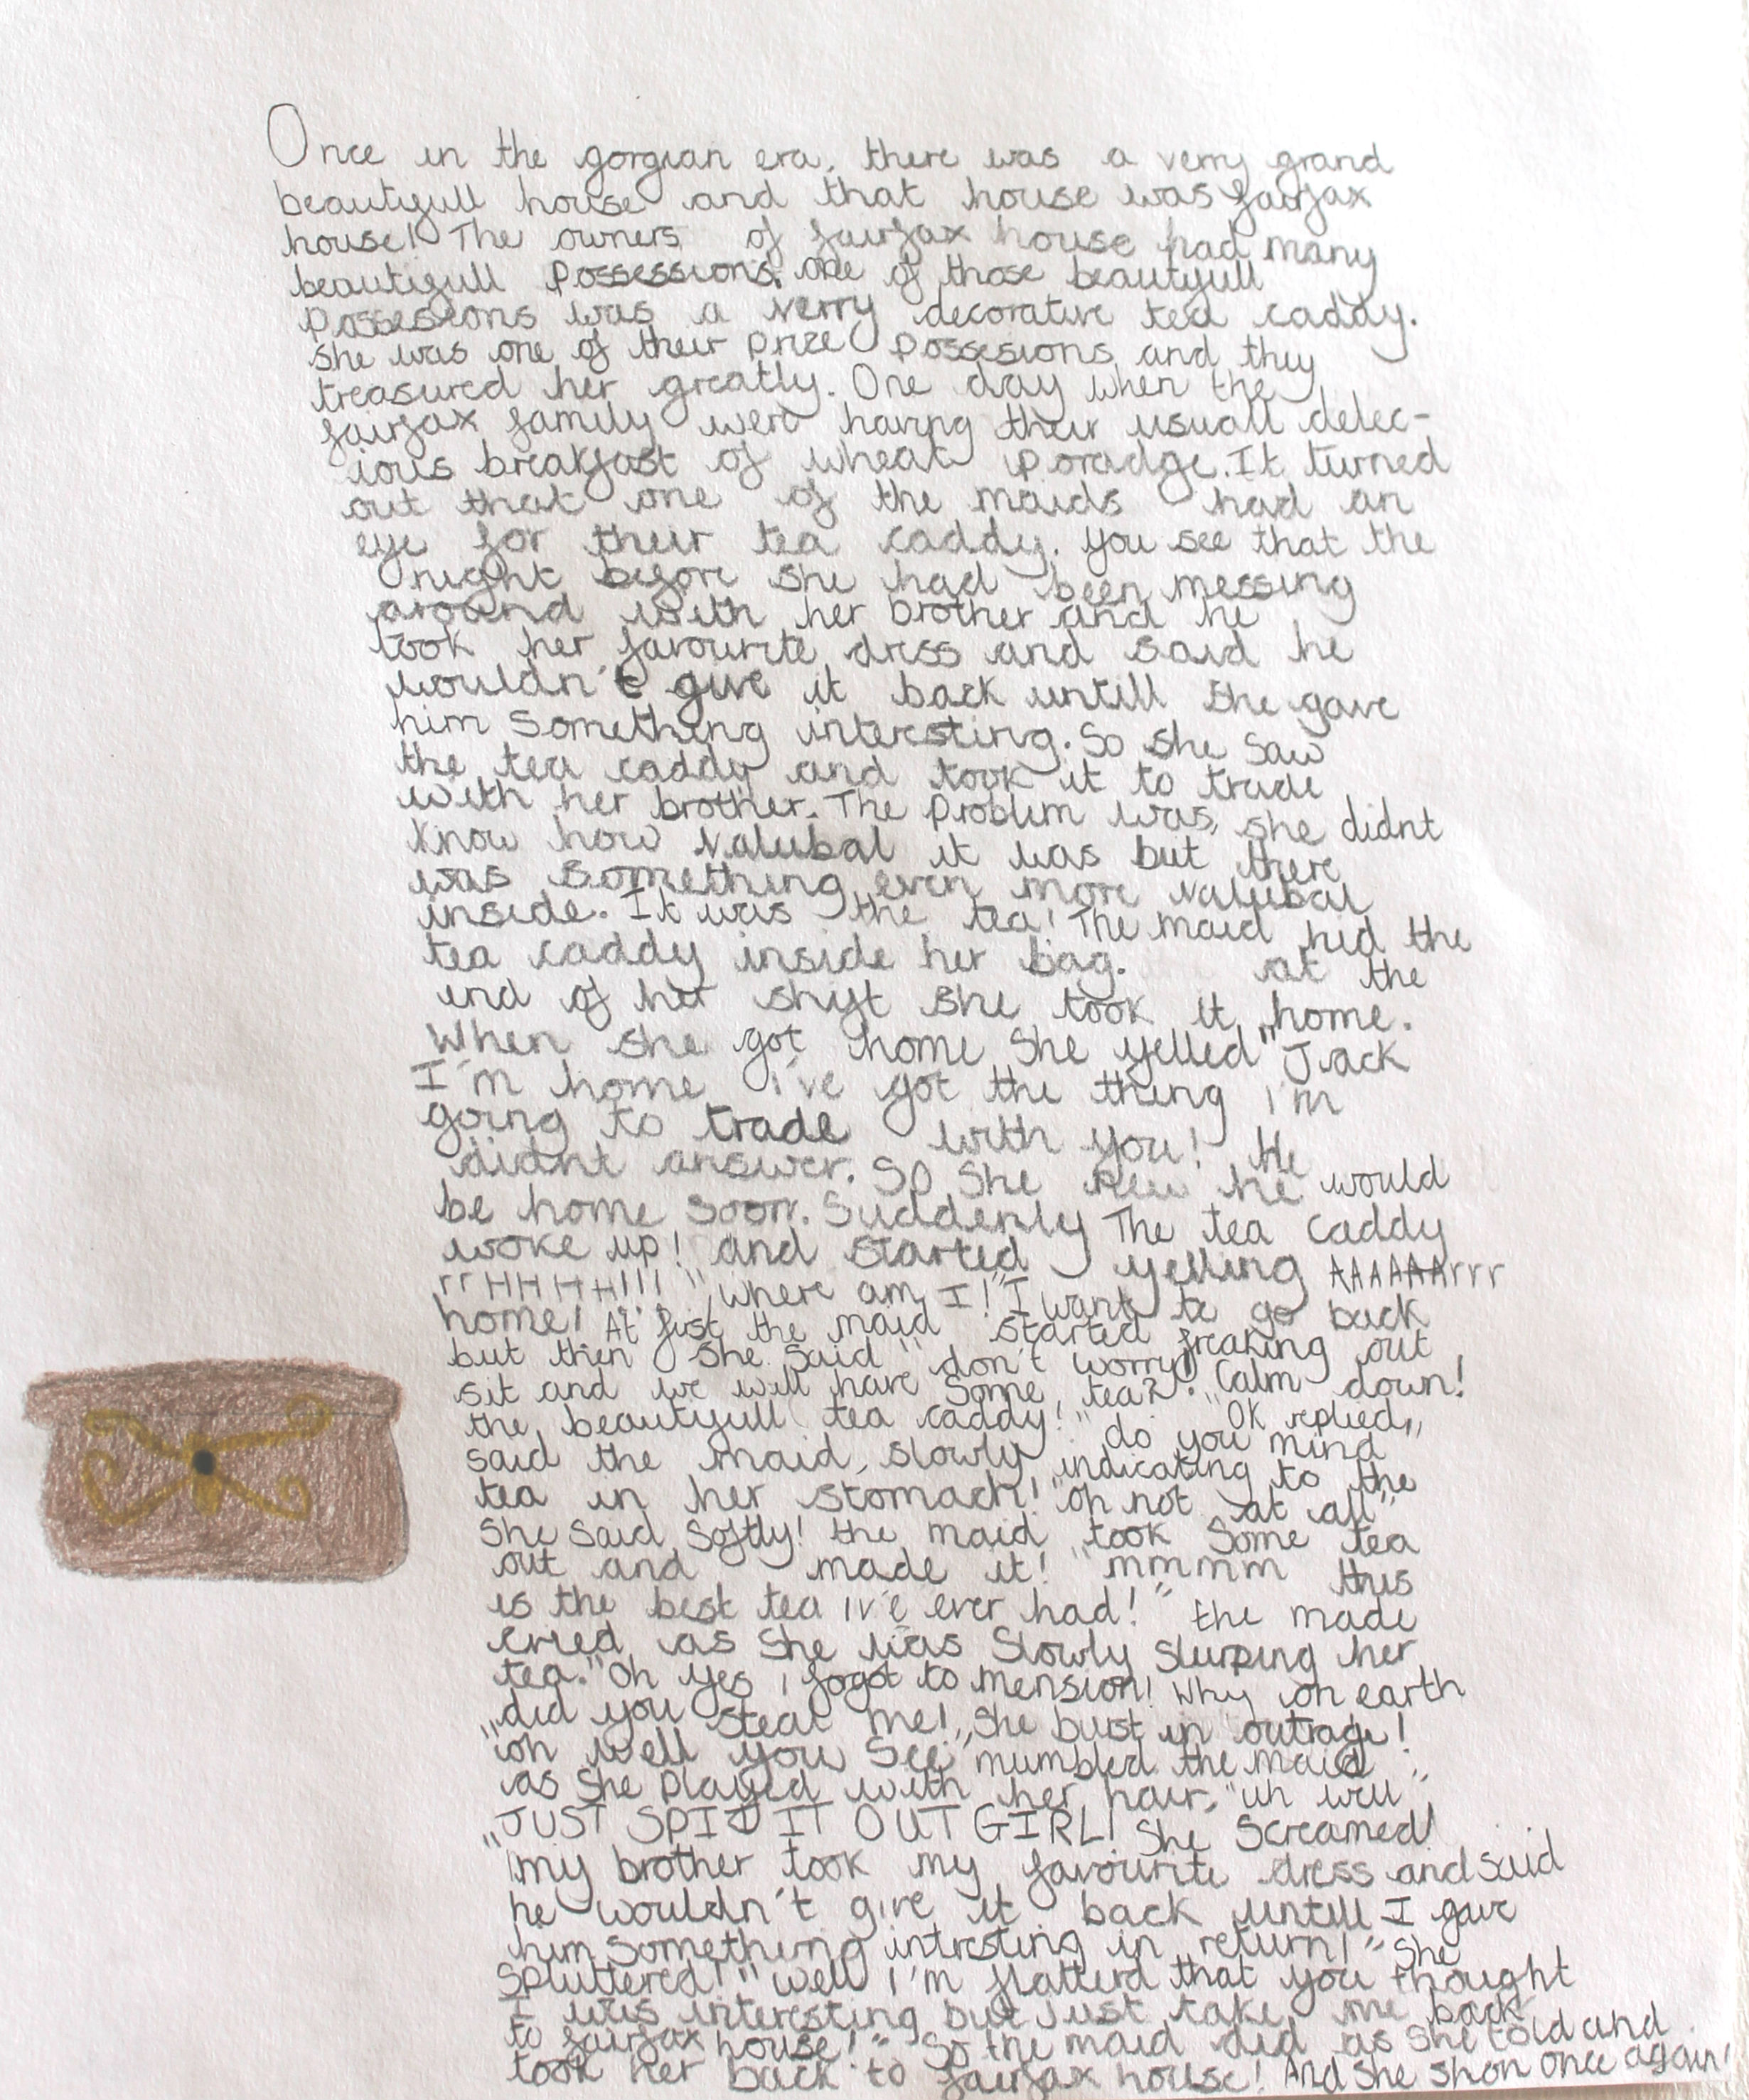 Once in the gorgian era, there was a verry grand
beautyfull house and that house was fairfax
house! The owners of fairfax house had many
beautifull Possessions, one of those beautyfull
Possesions was a verry decorative tea caddy.
She was one of their prize Possesions and they
treasured her greatly. One day when the
fairfax family were having their usuall delec-
ious breakfast of wheat poradge. It turned
out that one of the maids had an
eye for their tea caddy. you see that the
night before she had been messing
around with her brother and he
took her favourite dress and said he
wouldn't give it back untill she gave
him Something interesting. So she saw
the tea caddy and took it to trade
with her brother. The problem was, she didnt
know how valubal it was but there
was something even more valubal
inside. It was the tea! The maid hid the
tea caddy inside her bag. at the
end of her shift she took it home.
When she got home She yelled "Jack
I'm home i've got the thing i'm
going to trade with you! He
didnt answer. So She new he would
be home soon. Suddenly The tea caddy
woke up! and started yelling AAAAAArrr
rrHHHHH!!! "where am I!" I want to go back
home! At first the maid started freaking out
but then She said "don't worry! Calm down!
sit and we will have some tea?". "OK replied,,
the beautyfull tea caddy!" do you mind
said the maid, slowly indicating to the
tea in her stomach! "oh not at all"
She said softly! the maid took Some tea
out and made it! "mmmm this
is the best tea iv'e ever had!" the made
cried as She was Slowly slurping her
tea. "Oh yes i forgot to mension! Why on earth
did you steal me!,, She bust in outrage!
"oh well you see" mumbled the maid
as She played with her hair, "uh well"
"JUST SPIT IT OUT GIRL! She Screamed!
"my brother took my favourite dress and said
he wouldn't give it back untill I gave
him something intresting in return!" She
spluttered! "well i'm flatterd that you thought
I was interesting but Just take me back
to fairfax house!" So the maid did as she told and
took her back to fairfax house! And she shon once again!